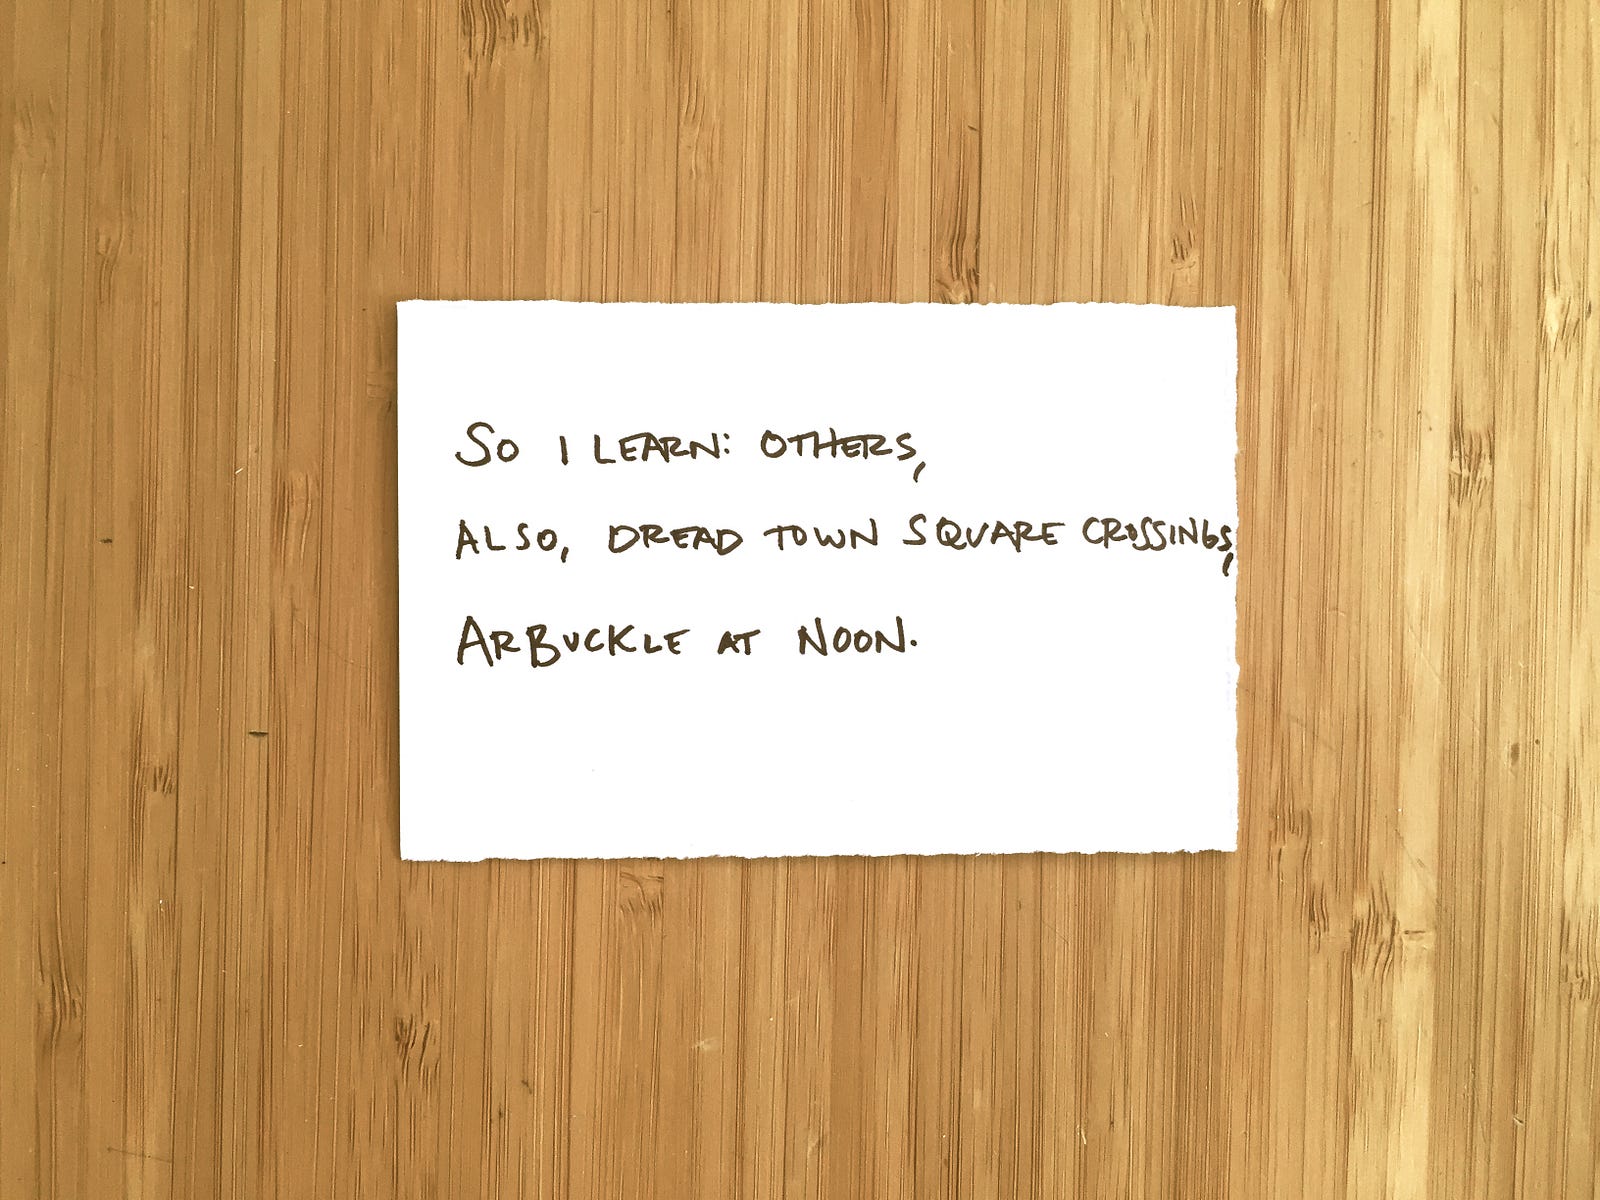 So I LEARN: OTHERS,
ALSO, DREAD TOWN SQUARE CROSSINGS,
ARBUCKLE AT NOON.